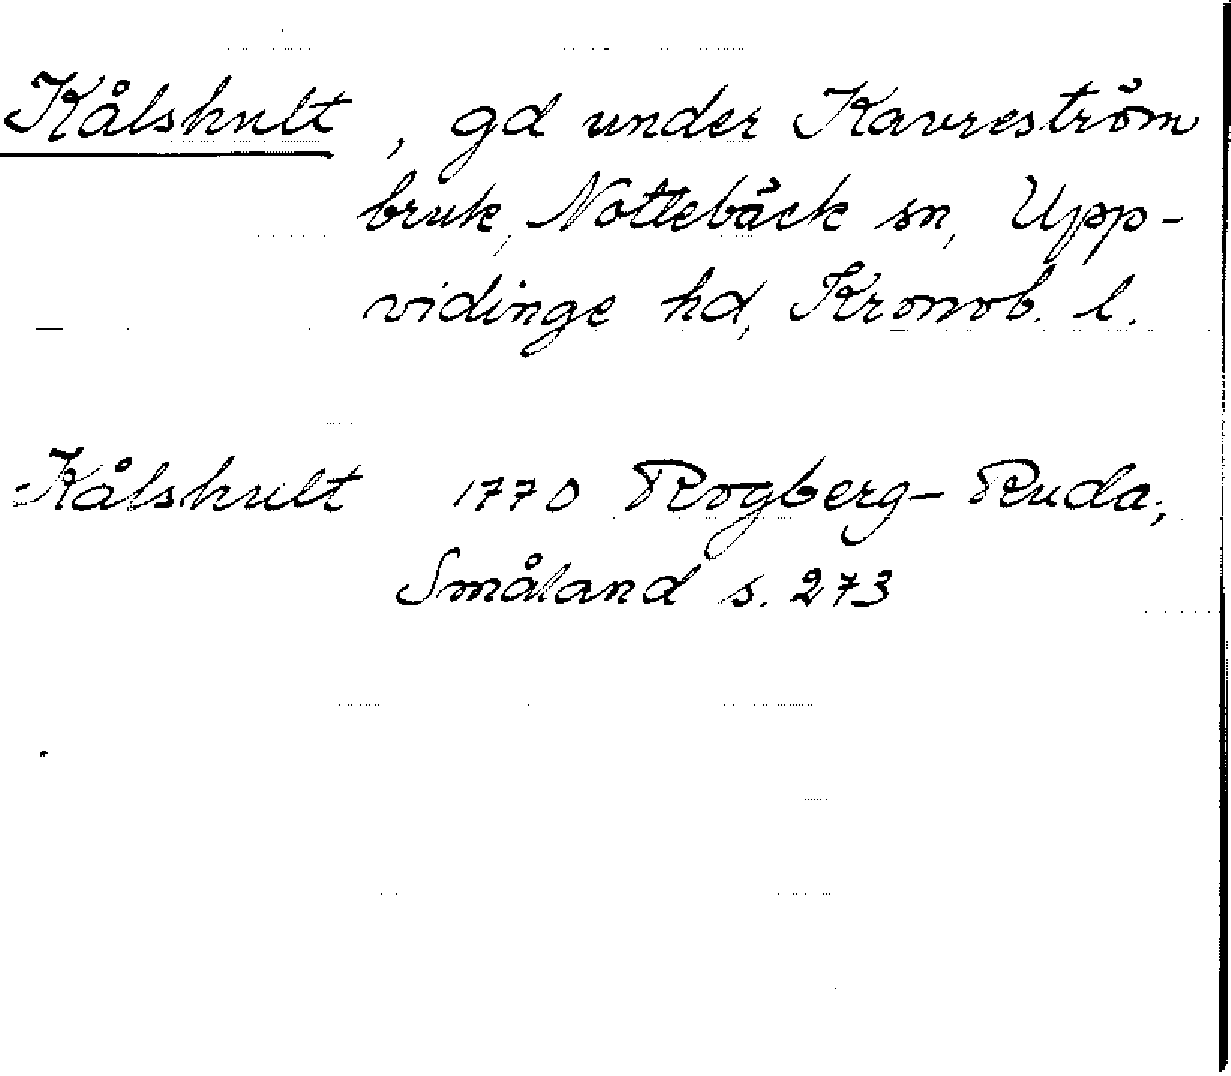 Kålshult, gd under Kavreström
bruk, Nottebäck sn, Upp-
vidinge hd, Kronob. l.
Kålshult 1770 Rogberg-Ruda,
Småland s. 273